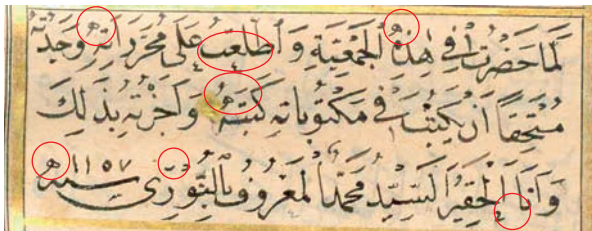 لَمَّا حَضَرْتُ فِي هٰذِهِ الْجَمْعِيَّةِ وَ اطَّلَعْتُ عَلَى مُحَرَّرَاتِهِ وَجَدْتُهُ
مُسْتَحِقًّا اَنْ يَكْتُبَ فِي مَكْتُوبَاتِهِ كَتَبَهُ وَاَجَزْتُهُ بِذٰلِكَ
وَاَنَا الْحَقِيرُ السَّيِّدُ مُحَمَّدُ الْمَعْرُوفُ بِالنُّورِي سنه ١١٥٧